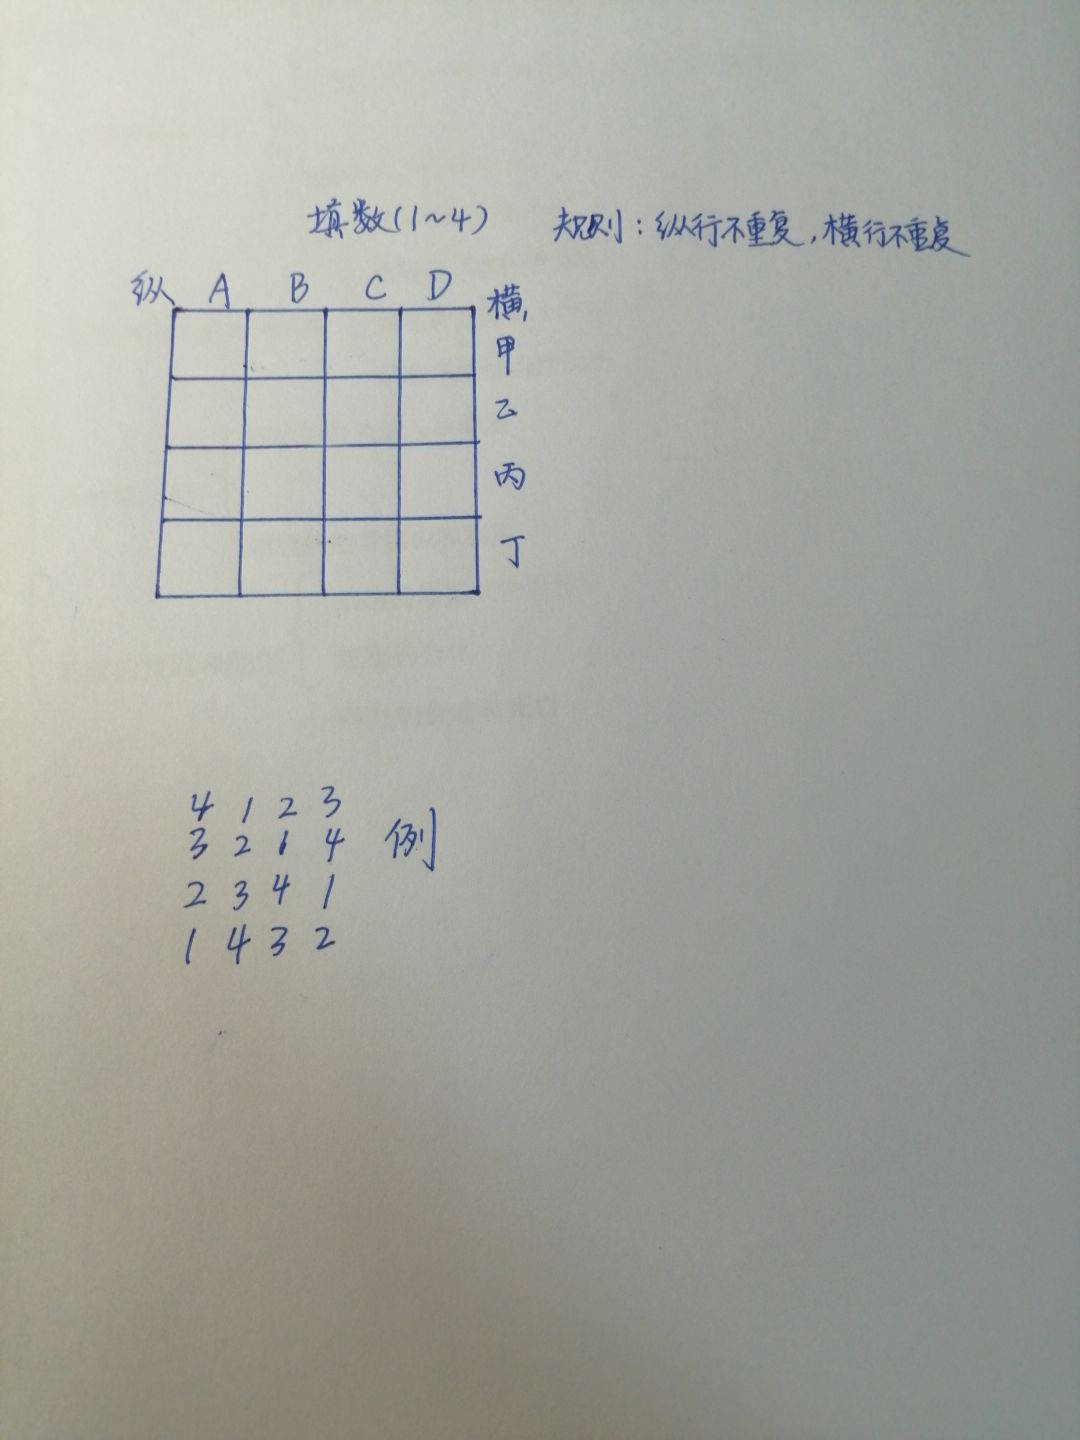 填数(1~4) 规则：纵行不重复，横行不重复
纵 A B C D 横
甲
乙
丙
丁
4 1 2 3
3 2 1 4 例
2 3 4 1
1 4 3 2